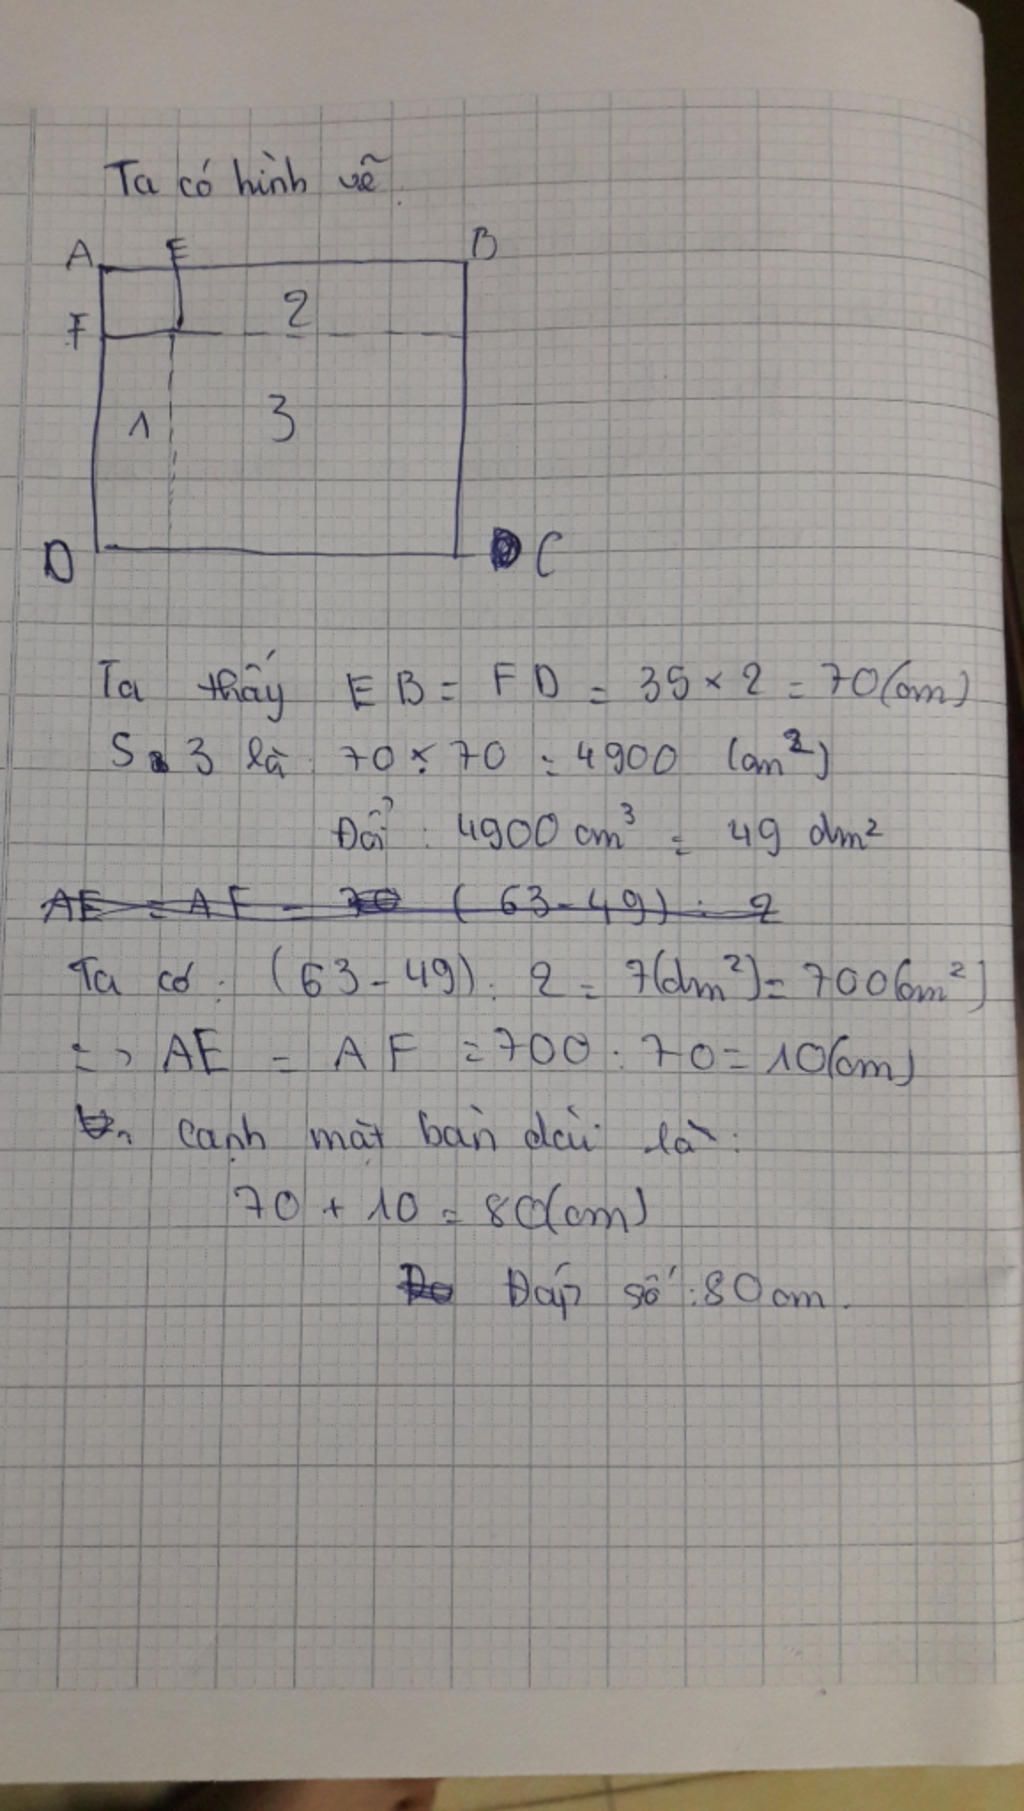 Ta có hình vẽ.
A E B
2
F
1 3
D C
Ta thấy EB = FD = 35 × 2 = 70 (cm)
S 3 là : 70 × 70 = 4900 (cm²)
Đổi : 4900 cm³ = 49 dm²
AE = AF = (63 - 49) : 2
Ta có : (63 - 49) : 2 = 7 (dm²) = 700 (cm²)
=> AE = AF = 700 : 70 = 10 (cm)
Cạnh mặt bàn dài là :
70 + 10 = 80 (cm)
Đáp số : 80 cm.